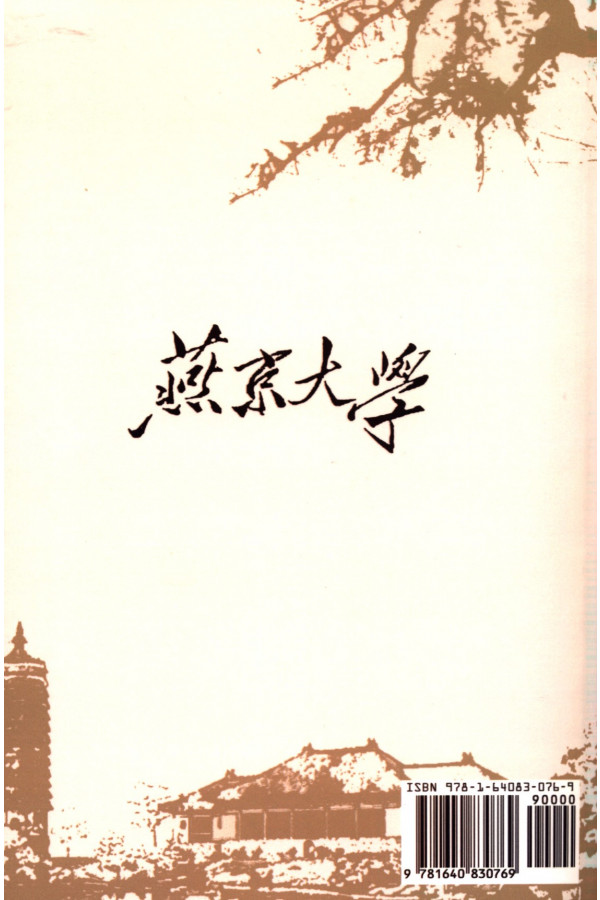 燕京大學
ISBN 978-1-64083-076-9
90000
9 781640 830769